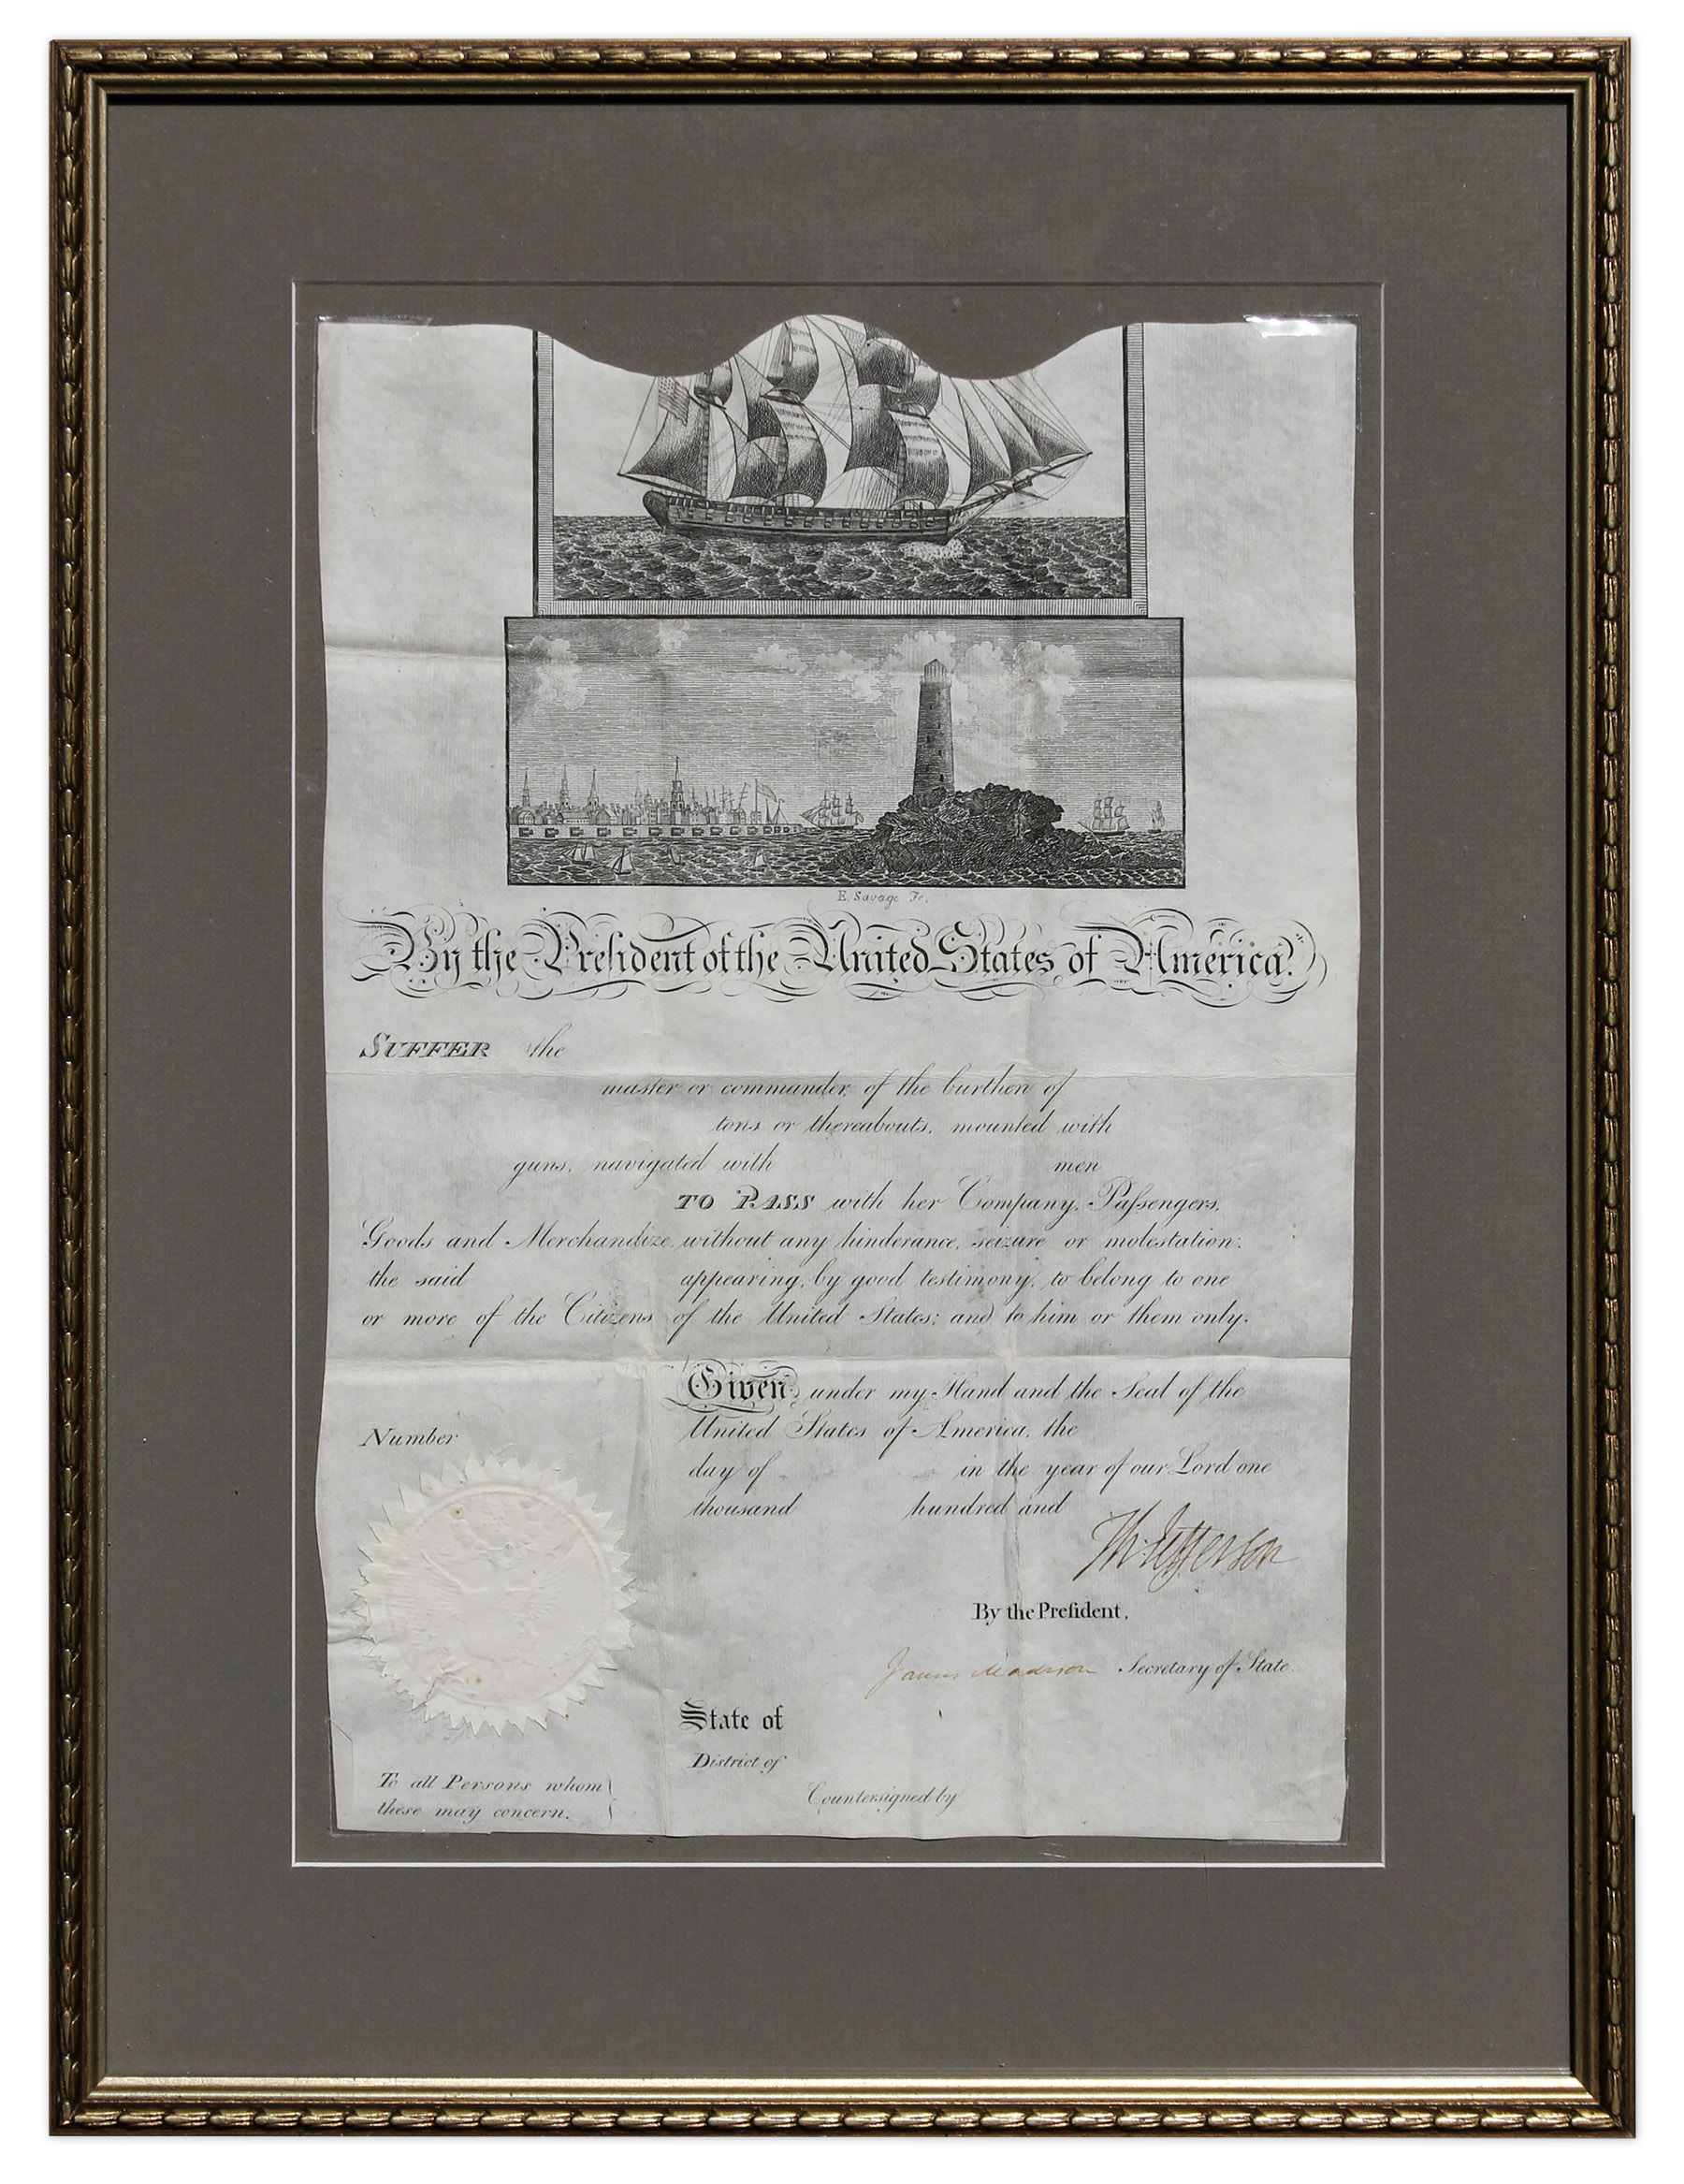 E. Savage Fe.
By the President of the United States of America.
SUFFER the
master or commander, of the burthen of
tons or thereabouts, mounted with
guns, navigated with men
TO PASS with her Company, Paſsengers,
Goods and Merchandize, without any hinderance, seizure or molestation:
the said appearing, by good testimony, to belong to one
or more of the Citizens of the United States; and to him or them only.
Given under my Hand and the Seal of the
United States of America, the
Number
day of in the year of our Lord one
thousand hundred and
Th: Jefferson
By the Preſident,
James Madison Secretary of State.
State of
District of
Countersigned by
To all Persons whom
these may concern.